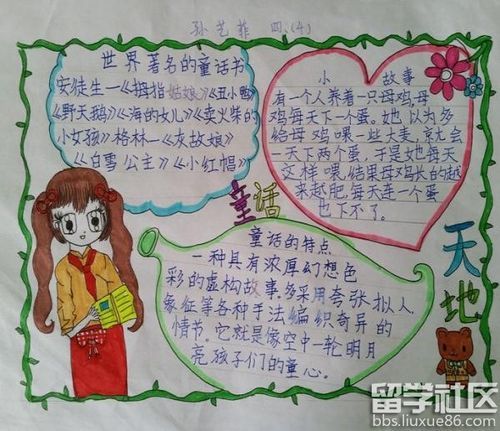 孙艺菲 四.(4)
世界著名的童话书
安徒生—《拇指姑娘》《丑小鸭》
《野天鹅》《海的女儿》《卖火柴的
小女孩》格林—《灰故娘》
《白雪公主》《小红帽》
小 故事
有一个人养着一只母鸡,母
鸡每天下一个蛋。她以为多
给母鸡喂一些大麦,就会
一天下两个蛋,于是她每天
这样喂,结果母鸡长的越
来越肥,每天连一个蛋
也下不了。
童话
天地
童话的特点
一种具有浓厚幻想色
彩的虚构故事,多采用夸张、拟人、
象征等各种手法编织奇异的
情节。它就是像空中一轮明月
亮孩子们的童心。
留学社区
bbs.liuxue86.com